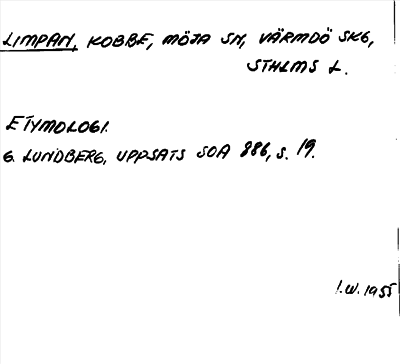 LIMPAN, KOBBE, MÖJA SN, VÄRMDÖ SKG,
STHLMS L.
ETYMOLOGI.
G. LUNDBERG, UPPSATS SOA 886, s. 19.
I.W. 1955